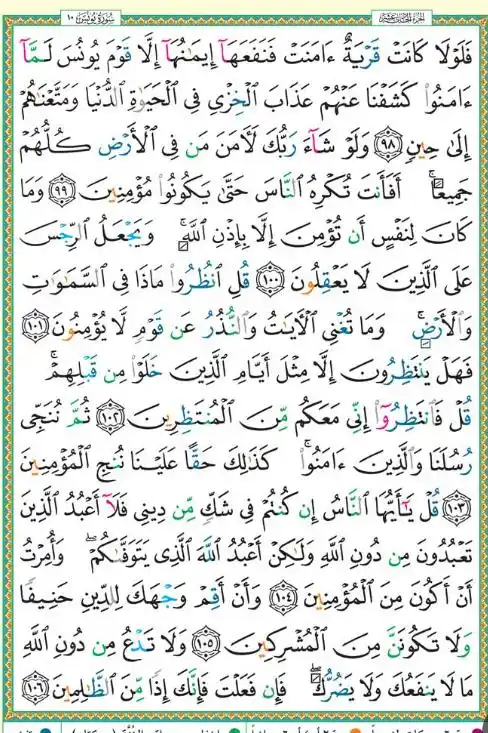 سُورَةُ يُونُسَ ١٠
فَلَوْلَا كَانَتْ قَرْيَةٌ ءَامَنَتْ فَنَفَعَهَآ إِيمَـٰنُهَآ إِلَّا قَوْمَ يُونُسَ لَمَّآ
ءَامَنُوا۟ كَشَفْنَا عَنْهُمْ عَذَابَ ٱلْخِزْىِ فِى ٱلْحَيَوٰةِ ٱلدُّنْيَا وَمَتَّعْنَـٰهُمْ
إِلَىٰ حِينٍ ﴿٩٨﴾ وَلَوْ شَآءَ رَبُّكَ لَـَٔامَنَ مَن فِى ٱلْأَرْضِ كُلُّهُمْ
جَمِيعًا ۚ أَفَأَنتَ تُكْرِهُ ٱلنَّاسَ حَتَّىٰ يَكُونُوا۟ مُؤْمِنِينَ ﴿٩٩﴾ وَمَا
كَانَ لِنَفْسٍ أَن تُؤْمِنَ إِلَّا بِإِذْنِ ٱللَّهِ ۚ وَيَجْعَلُ ٱلرِّجْسَ
عَلَى ٱلَّذِينَ لَا يَعْقِلُونَ ﴿١٠٠﴾ قُلِ ٱنظُرُوا۟ مَاذَا فِى ٱلسَّمَـٰوَٰتِ
وَٱلْأَرْضِ ۚ وَمَا تُغْنِى ٱلْـَٔايَـٰتُ وَٱلنُّذُرُ عَن قَوْمٍ لَّا يُؤْمِنُونَ ﴿١٠١﴾
فَهَلْ يَنتَظِرُونَ إِلَّا مِثْلَ أَيَّامِ ٱلَّذِينَ خَلَوْا۟ مِن قَبْلِهِمْ ۚ
قُلْ فَٱنتَظِرُوٓا۟ إِنِّى مَعَكُم مِّنَ ٱلْمُنتَظِرِينَ ﴿١٠٢﴾ ثُمَّ نُنَجِّى
رُسُلَنَا وَٱلَّذِينَ ءَامَنُوا۟ ۚ كَذَٰلِكَ حَقًّا عَلَيْنَا نُنجِ ٱلْمُؤْمِنِينَ
﴿١٠٣﴾ قُلْ يَـٰٓأَيُّهَا ٱلنَّاسُ إِن كُنتُمْ فِى شَكٍّ مِّن دِينِى فَلَآ أَعْبُدُ ٱلَّذِينَ
تَعْبُدُونَ مِن دُونِ ٱللَّهِ وَلَـٰكِنْ أَعْبُدُ ٱللَّهَ ٱلَّذِى يَتَوَفَّىٰكُمْ ۖ وَأُمِرْتُ
أَنْ أَكُونَ مِنَ ٱلْمُؤْمِنِينَ ﴿١٠٤﴾ وَأَنْ أَقِمْ وَجْهَكَ لِلدِّينِ حَنِيفًا
وَلَا تَكُونَنَّ مِنَ ٱلْمُشْرِكِينَ ﴿١٠٥﴾ وَلَا تَدْعُ مِن دُونِ ٱللَّهِ
مَا لَا يَنفَعُكَ وَلَا يَضُرُّكَ ۖ فَإِن فَعَلْتَ فَإِنَّكَ إِذًا مِّنَ ٱلظَّـٰلِمِينَ ﴿١٠٦﴾